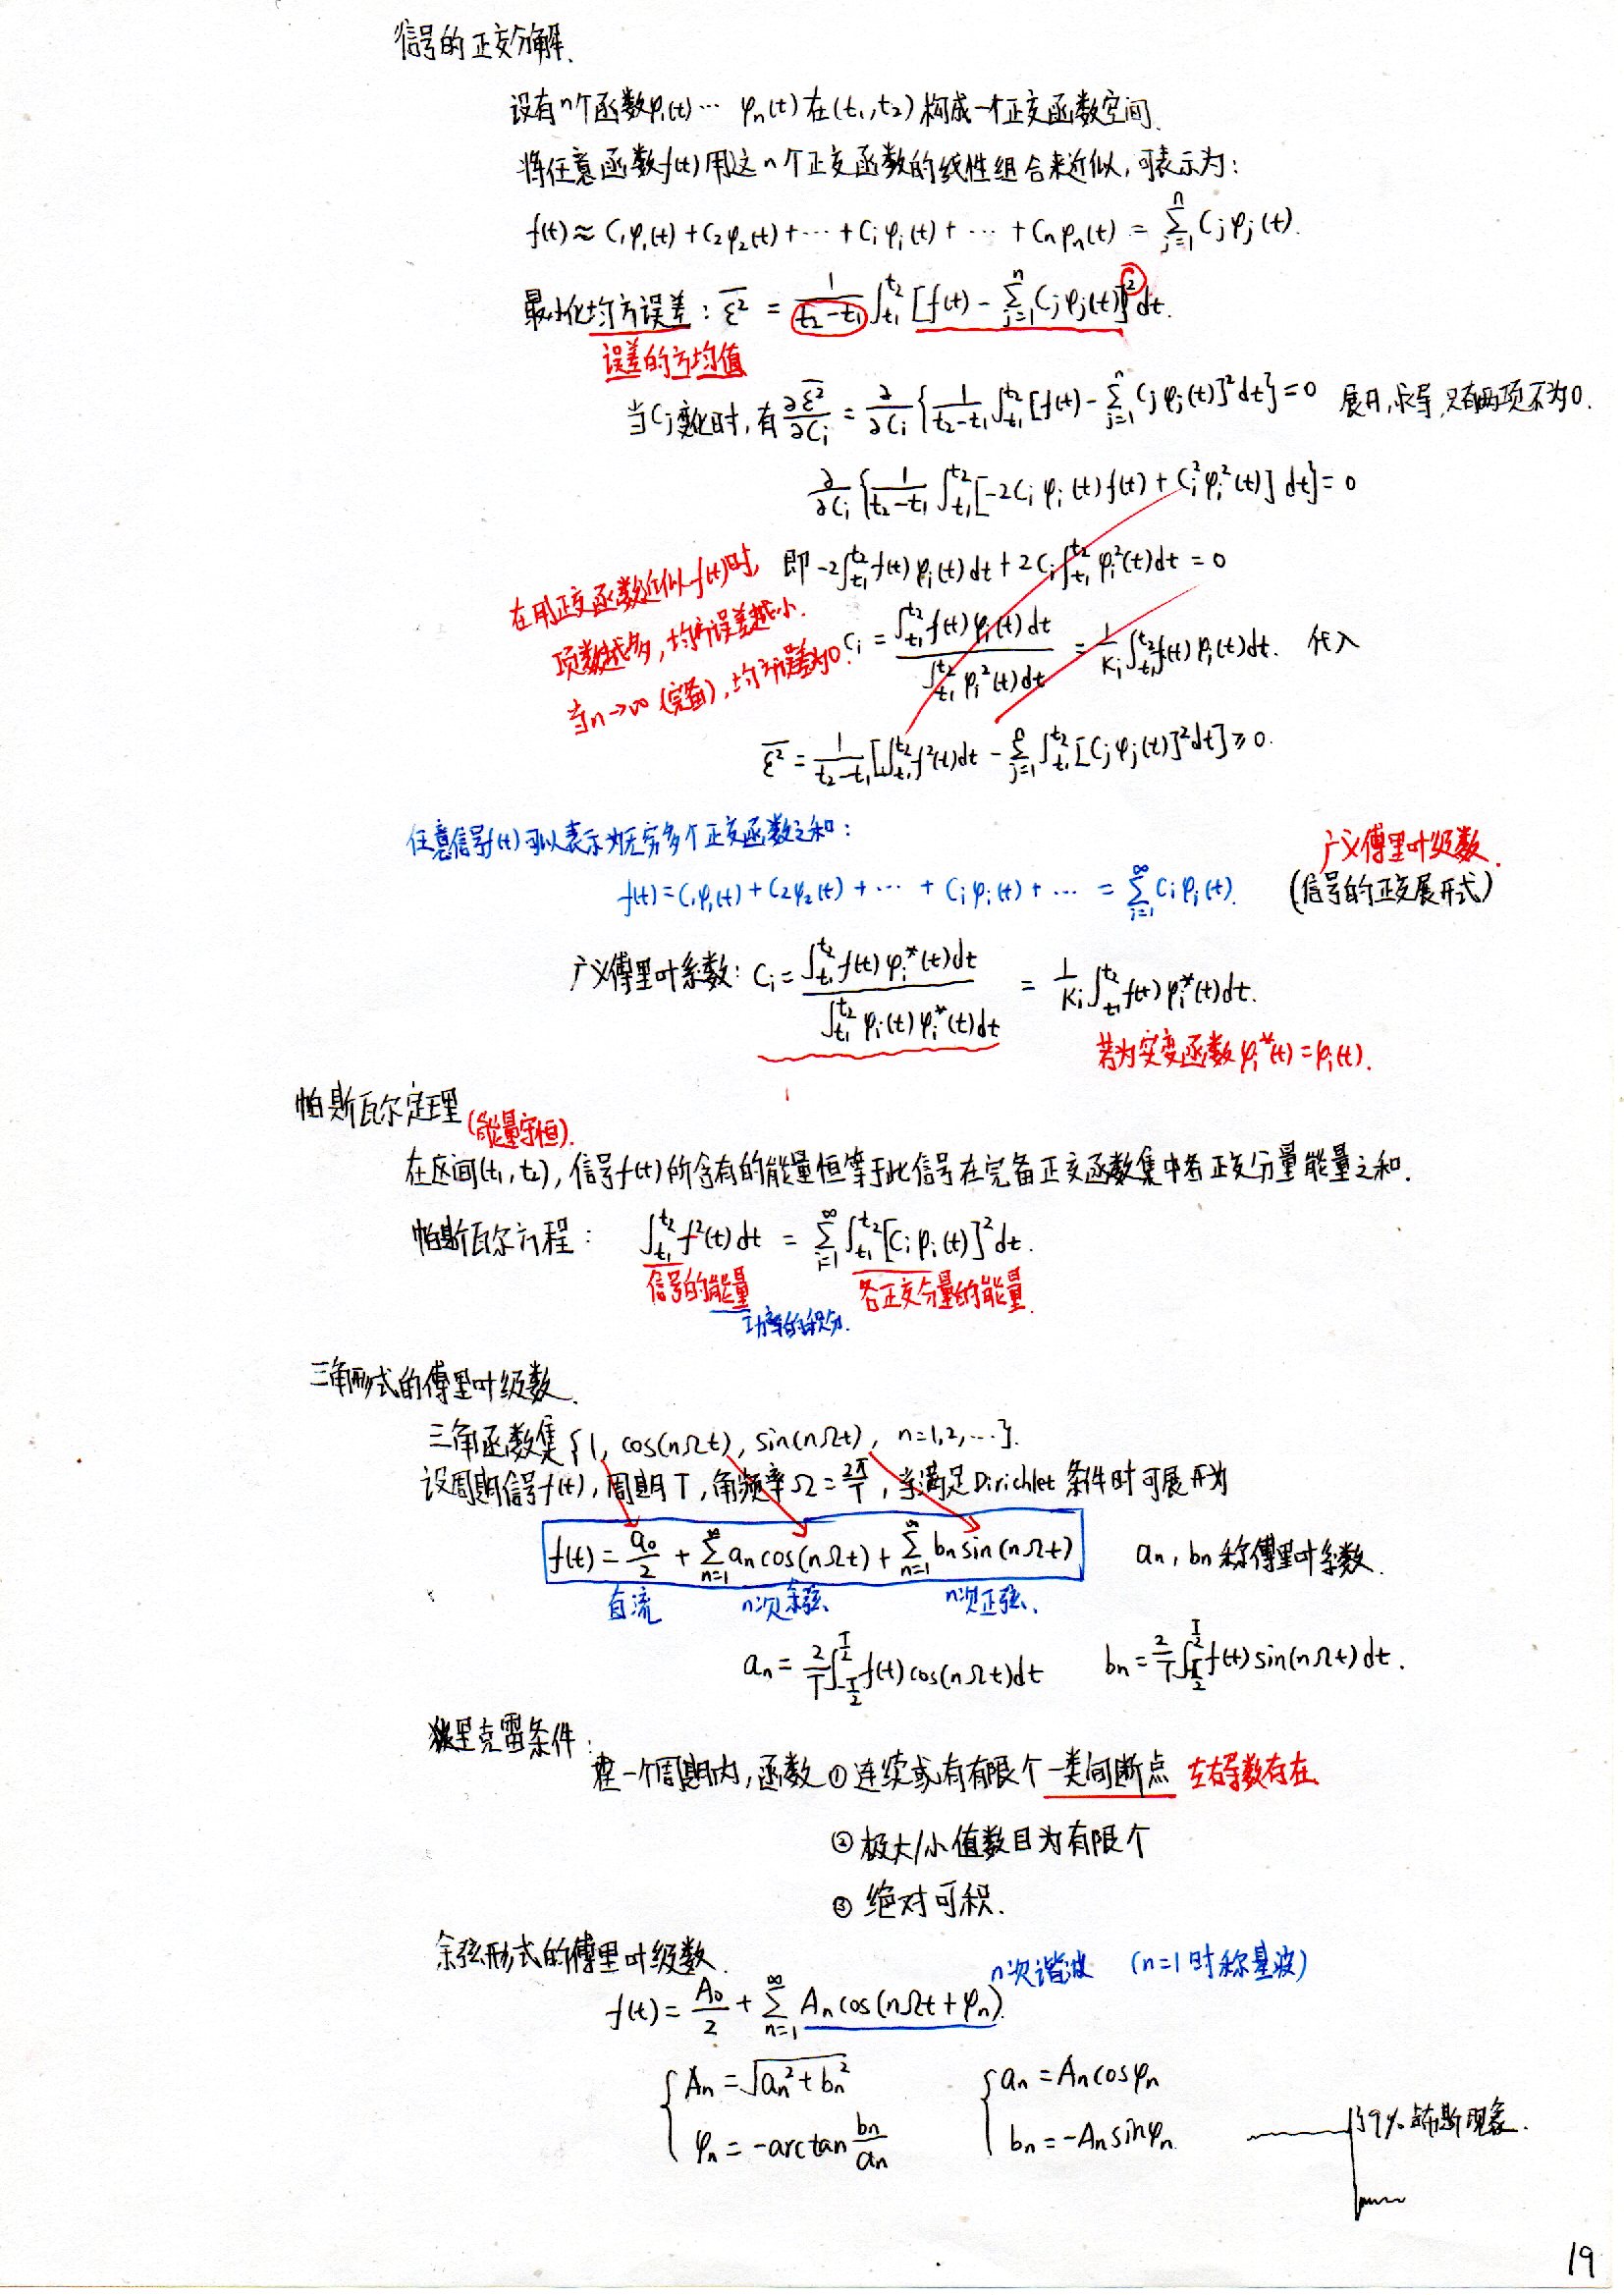 信号的正交分解.
设有n个函数φ₁(t)… φₙ(t)在(t₁,t₂)构成一个正交函数空间.
将任意函数f(t)用这n个正交函数的线性组合来近似,可表示为:
f(t)≈C₁φ₁(t)+C₂φ₂(t)+…+Cᵢφᵢ(t)+…+Cₙφₙ(t) = ∑_{j=1}^{n} Cⱼφⱼ(t).
最小化均方误差: \overline{ε²} = \frac{1}{t₂-t₁}∫_{t₁}^{t₂}[f(t)-∑_{j=1}^{n}Cⱼφⱼ(t)]²dt.
误差的方均值
当Cⱼ变化时,有\frac{∂\overline{ε²}}{∂Cᵢ} = \frac{∂}{∂Cᵢ}{\frac{1}{t₂-t₁}∫_{t₁}^{t₂}[f(t)-∑_{j=1}^{n}Cⱼφⱼ(t)]²dt}=0 展开,求导,只有两项不为0.
\frac{∂}{∂Cᵢ}{\frac{1}{t₂-t₁}∫_{t₁}^{t₂}[-2Cᵢφᵢ(t)f(t)+Cᵢ²φᵢ²(t)]dt}=0
即 -2∫_{t₁}^{t₂}f(t)φᵢ(t)dt+2Cᵢ∫_{t₁}^{t₂}φᵢ²(t)dt=0
在用正交函数近似f(t)时,
项数越多,均方误差越小.
当n→∞(完备),均方误差为0.
Cᵢ = \frac{∫_{t₁}^{t₂}f(t)φᵢ(t)dt}{∫_{t₁}^{t₂}φᵢ²(t)dt} = \frac{1}{Kᵢ}∫_{t₁}^{t₂}f(t)φᵢ(t)dt. 代入
\overline{ε²} = \frac{1}{t₂-t₁}[∫_{t₁}^{t₂}f²(t)dt-∑_{j=1}^{n}∫_{t₁}^{t₂}[Cⱼφⱼ(t)]²dt]≥0.
任意信号f(t)可以表示为无穷多个正交函数之和:
广义傅里叶级数.
f(t)=C₁φ₁(t)+C₂φ₂(t)+…+Cᵢφᵢ(t)+… = ∑_{i=1}^{∞}Cᵢφᵢ(t). (信号的正交展开式)
广义傅里叶系数: Cᵢ=\frac{∫_{t₁}^{t₂}f(t)φᵢ*(t)dt}{∫_{t₁}^{t₂}φᵢ(t)φᵢ*(t)dt} = \frac{1}{Kᵢ}∫_{t₁}^{t₂}f(t)φᵢ*(t)dt.
若为实变函数φᵢ*(t)=φᵢ(t).
帕斯瓦尔定理(能量守恒).
在区间(t₁,t₂),信号f(t)所含有的能量恒等于此信号在完备正交函数集中各正交分量能量之和.
帕斯瓦尔方程: ∫_{t₁}^{t₂}f²(t)dt = ∑_{i=1}^{∞}∫_{t₁}^{t₂}[Cᵢφᵢ(t)]²dt.
信号的能量 各正交分量的能量.
功率的积分.
三角形式的傅里叶级数.
三角函数集{1, cos(nΩt), sin(nΩt), n=1,2,…}.
设周期信号f(t),周期T,角频率Ω=\frac{2π}{T},当满足Dirichlet条件时可展开为
f(t)=\frac{a₀}{2}+∑_{n=1}^{∞}aₙcos(nΩt)+∑_{n=1}^{∞}bₙsin(nΩt) aₙ,bₙ称傅里叶系数.
直流 n次余弦 n次正弦.
aₙ=\frac{2}{T}∫_{-\frac{T}{2}}^{\frac{T}{2}}f(t)cos(nΩt)dt bₙ=\frac{2}{T}∫_{-\frac{T}{2}}^{\frac{T}{2}}f(t)sin(nΩt)dt.
狄里克雷条件:
在一个周期内,函数①连续或有有限个一类间断点 左右导数存在.
②极大/小值数目为有限个
③绝对可积.
余弦形式的傅里叶级数.
n次谐波 (n=1时称基波)
f(t)=\frac{A₀}{2}+∑_{n=1}^{∞}Aₙcos(nΩt+φₙ).
{Aₙ=\sqrt{aₙ²+bₙ²} {aₙ=Aₙcosφₙ
φₙ=-arctan\frac{bₙ}{aₙ} bₙ=-Aₙsinφₙ.
}9% 吉布斯现象.
19